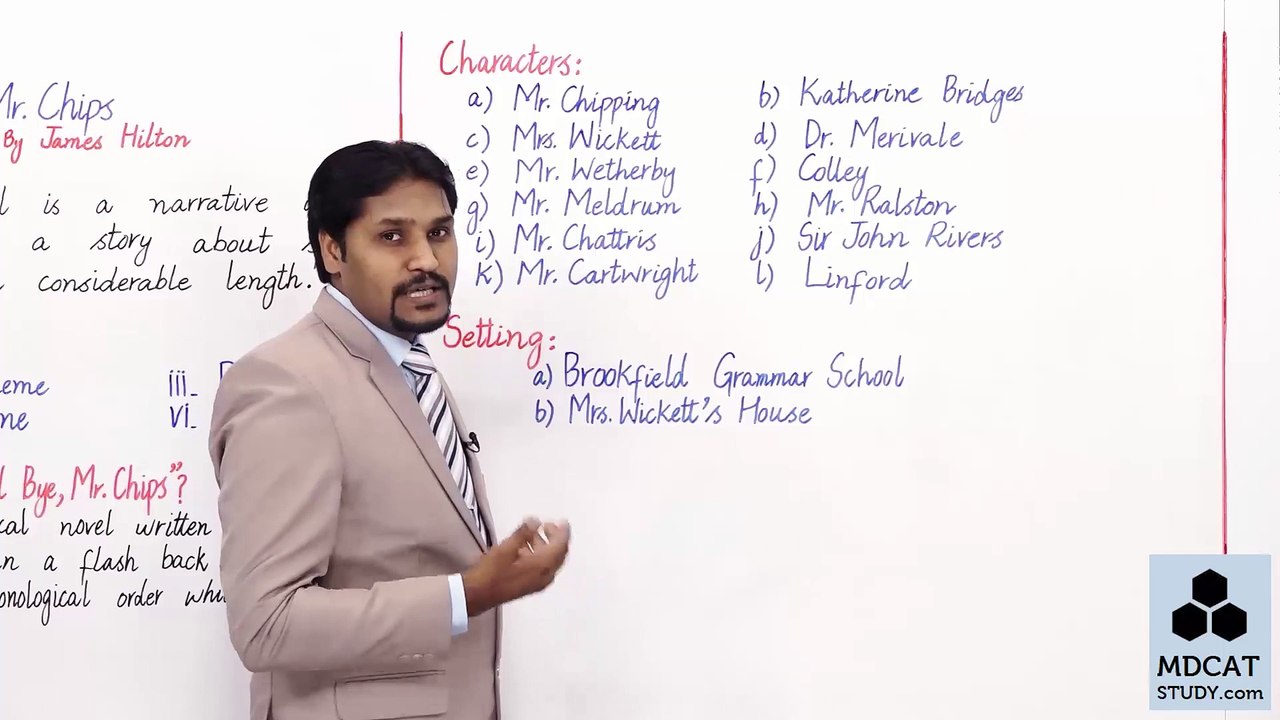 Mr. Chips
By James Hilton
is a narrative
a story about
considerable length.
iii_
vi_
Bye, Mr. Chips"?
novel written
a flash back
order
Characters:
a) Mr. Chipping b) Katherine Bridges
c) Mrs. Wickett d) Dr. Merivale
e) Mr. Wetherby f) Colley
g) Mr. Meldrum h) Mr. Ralston
i) Mr. Chattris j) Sir John Rivers
k) Mr. Cartwright l) Linford
Setting:
a) Brookfield Grammar School
b) Mrs. Wickett's House
MDCAT
STUDY.com